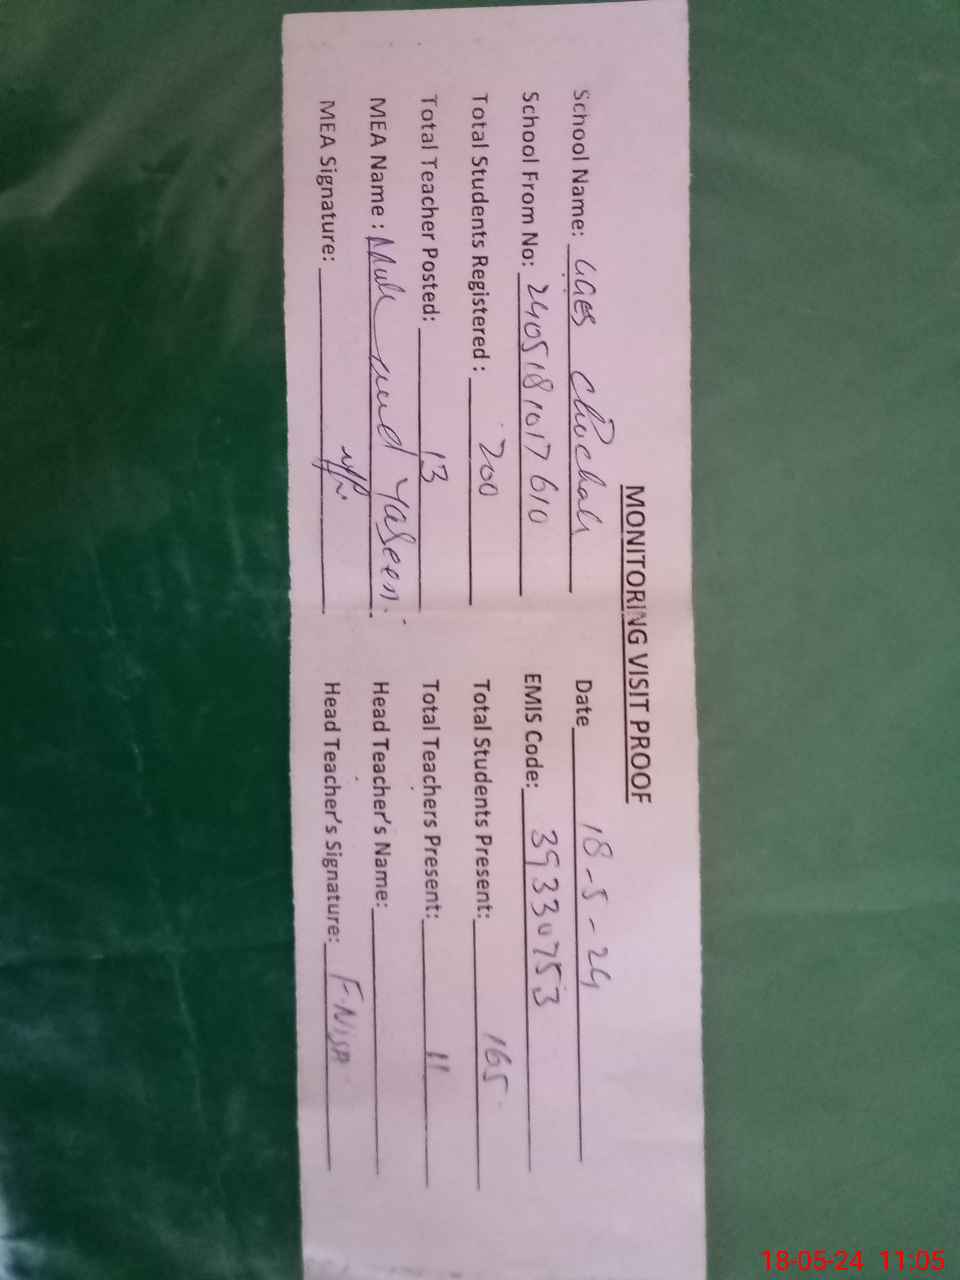 MONITORING VISIT PROOF
School Name: GGES Chochali Date 18-5-24
School From No: 240518101 7610 EMIS Code: 39330753
Total Students Registered : 200 Total Students Present: 165
Total Teacher Posted: 13 Total Teachers Present: 11
MEA Name : Yaseen. Head Teacher's Name:
MEA Signature: Head Teacher's Signature: F.Nisa
18-05-24 11:05